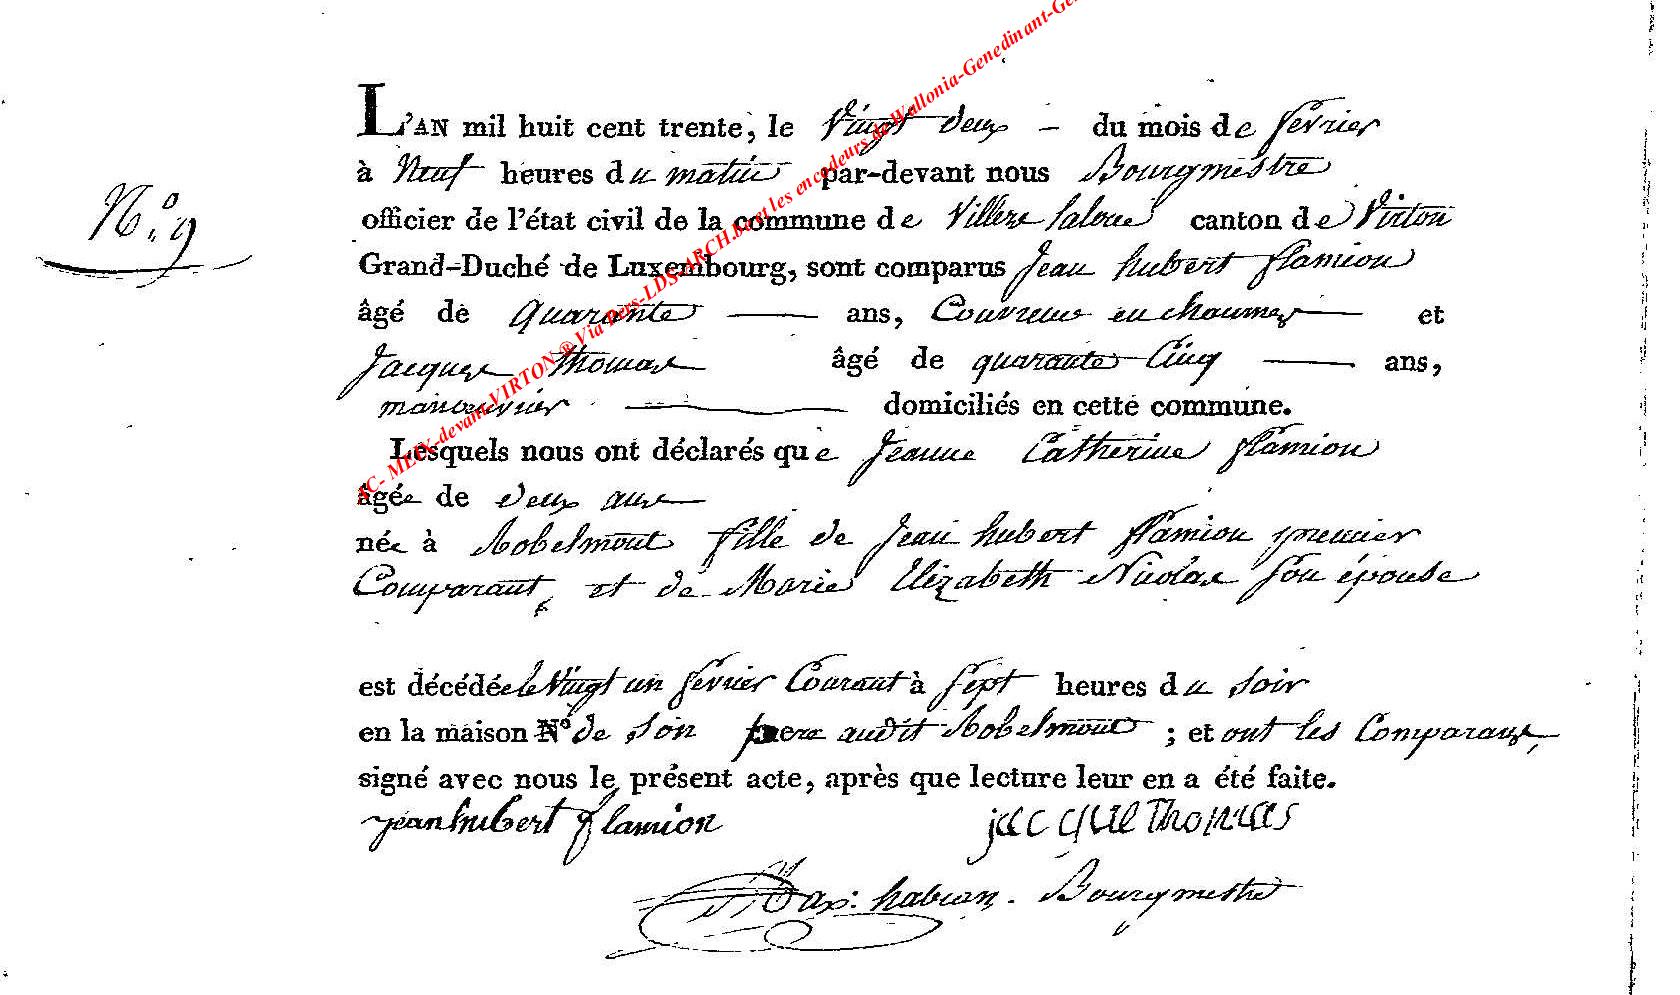 L'AN mil huit cent trente, le Vingt deux - du mois de fevrier
à Neuf heures du matin par-devant nous Bourgmestre
N.o 9
officier de l'état civil de la commune de Villers laloue canton de Virton
Grand-Duché de Luxembourg, sont comparus Jean hubert flamion
âgé de quarante — ans, Couvreur en chaumes — et
Jacques thomas âgé de quarante Cinq — ans,
manouvrier — domiciliés en cette commune.
Lesquels nous ont déclarés que Jeanne Catherine flamion
âgée de deux ans
née à Robelmont fille de Jean hubert flamion premier
Comparant, et de Marie Elizabeth Nicolas son épouse
est décédée le Vingt un fevrier Courant à sept heures du soir
en la maison No de son pere audit Robelmont ; et ont les Comparans,
signé avec nous le présent acte, après que lecture leur en a été faite.
jean hubert flamion jacque THomas
Max: habran. Bourgmestre
AC- MEIX-devant-VIRTON ® Via Pers-LDS-ARCH.be et les encodeurs de Wallonia-Genedinant-Ge